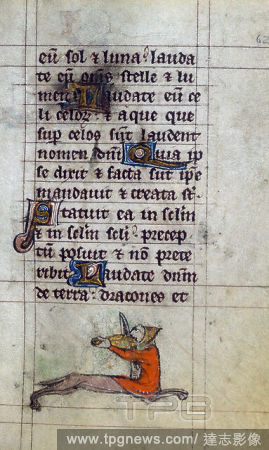 eū sol & luna lauda
te eū oms stelle & lu
men Laudate eū ce
li celoꝝ & aque que
sup celos sūt laudent
nomen dnī Quia ip
se dixit & facta sūt ipe
mandauit & creata st
Statuit ea in sclm
& in sclm scli precep
tū posuit & nō prete
ribit Laudate dnm
de terra dracones et
TPG
www.tpgnews.com/達志影像